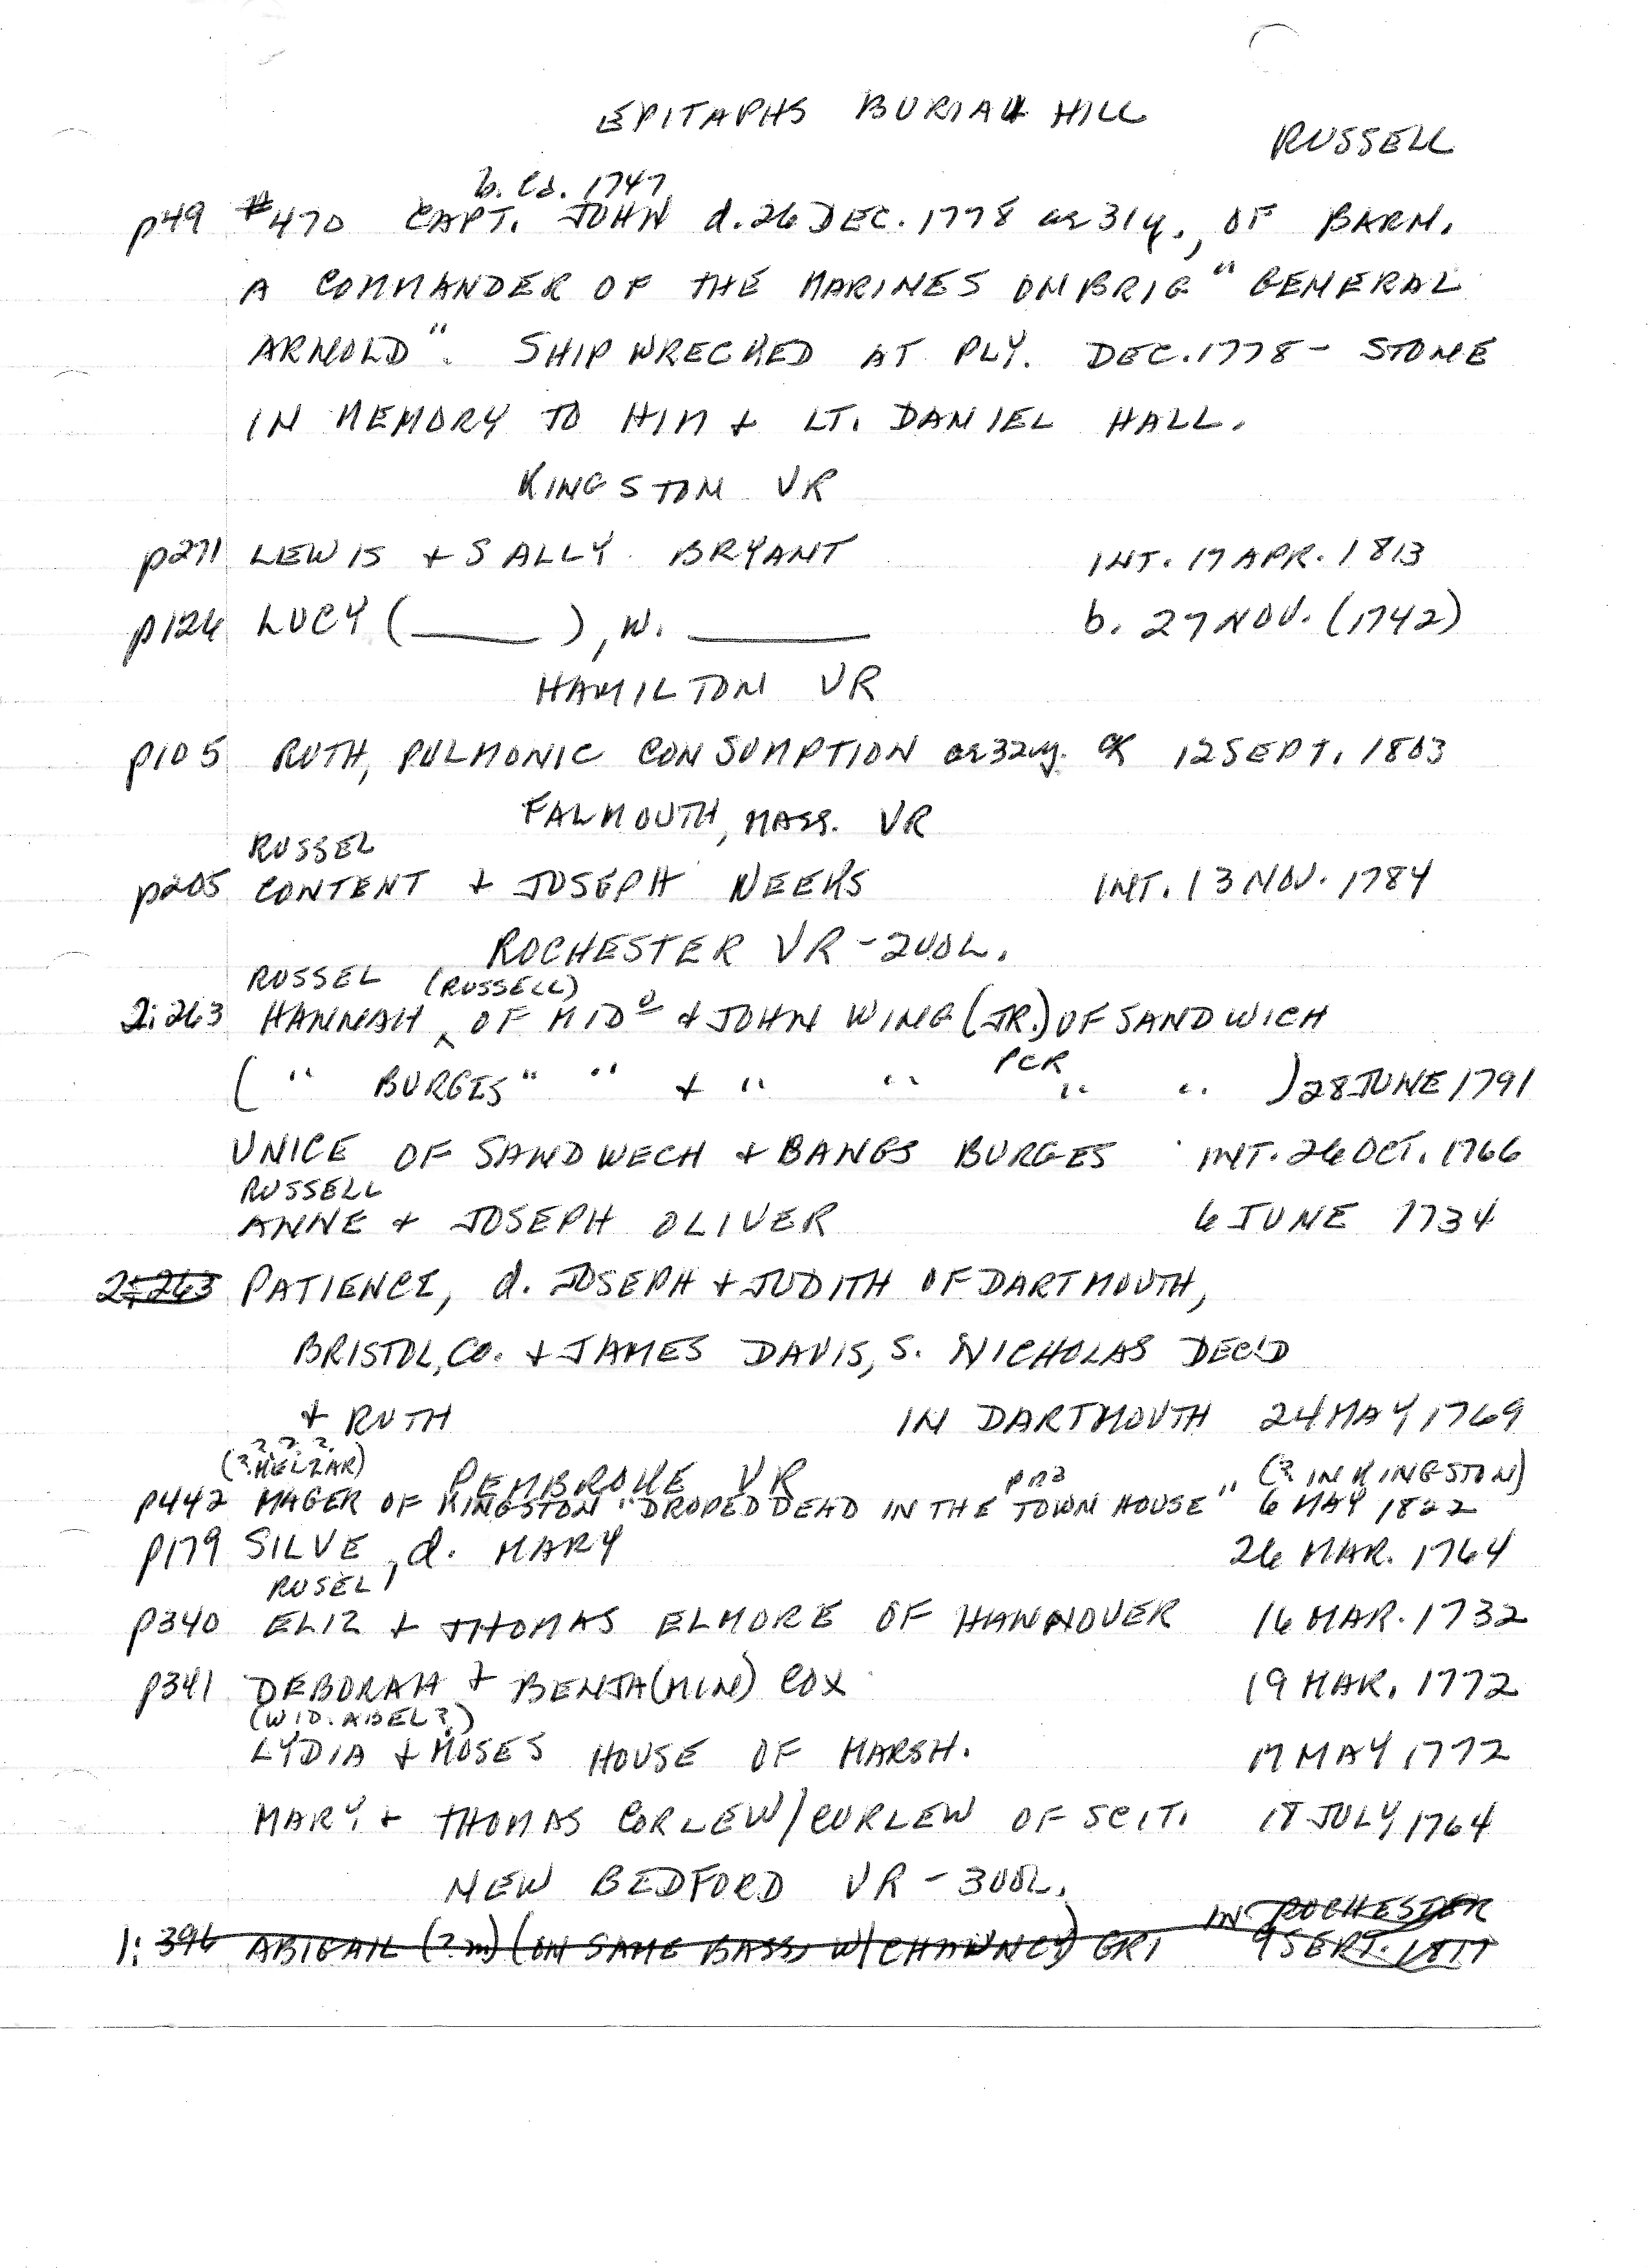 EPITAPHS BURIAL HILL
RUSSELL
b. Ca. 1747
p49 #470 CAPT. JOHN d. 26 DEC. 1778 ae 31y., OF BARN.
A COMMANDER OF THE MARINES ON BRIG "GENERAL
ARNOLD". SHIPWRECKED AT PLY. DEC. 1778 - STONE
IN MEMORY TO HIM + LT. DANIEL HALL.
KINGSTON VR
p271 LEWIS + SALLY BRYANT INT. 17 APR. 1813
p126 LUCY (____), w. ____ b. 27 NOV. (1742)
HAMILTON VR
p105 RUTH, PULMONIC CONSUMPTION ae 32y. 12 SEPT. 1803
FALMOUTH, MASS. VR
RUSSEL
p205 CONTENT + JOSEPH MEEKS INT. 13 NOV. 1784
ROCHESTER VR - 2 VOL.
RUSSEL (RUSSELL)
2:263 HANNAH ^ OF MIDº + JOHN WING (JR.) OF SANDWICH
PCR
( " BURGES " " + " " " " ) 28 JUNE 1791
UNICE OF SANDWECH + BANGS BURGES INT. 26 OCT. 1766
RUSSELL
ANNE + JOSEPH OLIVER 6 JUNE 1734
2:263 PATIENCE, d. JOSEPH + JUDITH OF DARTMOUTH,
BRISTOL, CO. + JAMES DAVIS, S. NICHOLAS DEC'D
+ RUTH IN DARTMOUTH 24 MAY 1769
? ? ?
(? MELZAR) PEMBROKE VR PR2 (? IN KINGSTON)
p442 MAGER OF KINGSTON "DROPED DEAD IN THE TOWN HOUSE" 6 MAY 1822
p179 SILVE, d. MARY 26 MAR. 1764
RUSEL
p340 ELIZ + THOMAS ELMORE OF HANNOVER 16 MAR. 1732
p341 DEBORAH + BENJA(MIN) COX 19 MAR. 1772
(WID. ABEL?)
LYDIA + MOSES HOUSE OF MARSH. 17 MAY 1772
MARY + THOMAS CORLEW/CURLEW OF SCIT. 18 JULY 1764
NEW BEDFORD VR - 3 VOL.
IN ROCHESTER
1:396 ABIGAIL (? m) (ON SAME BASS. W/ CHAWNCY) GR1 9 SEPT. 1817